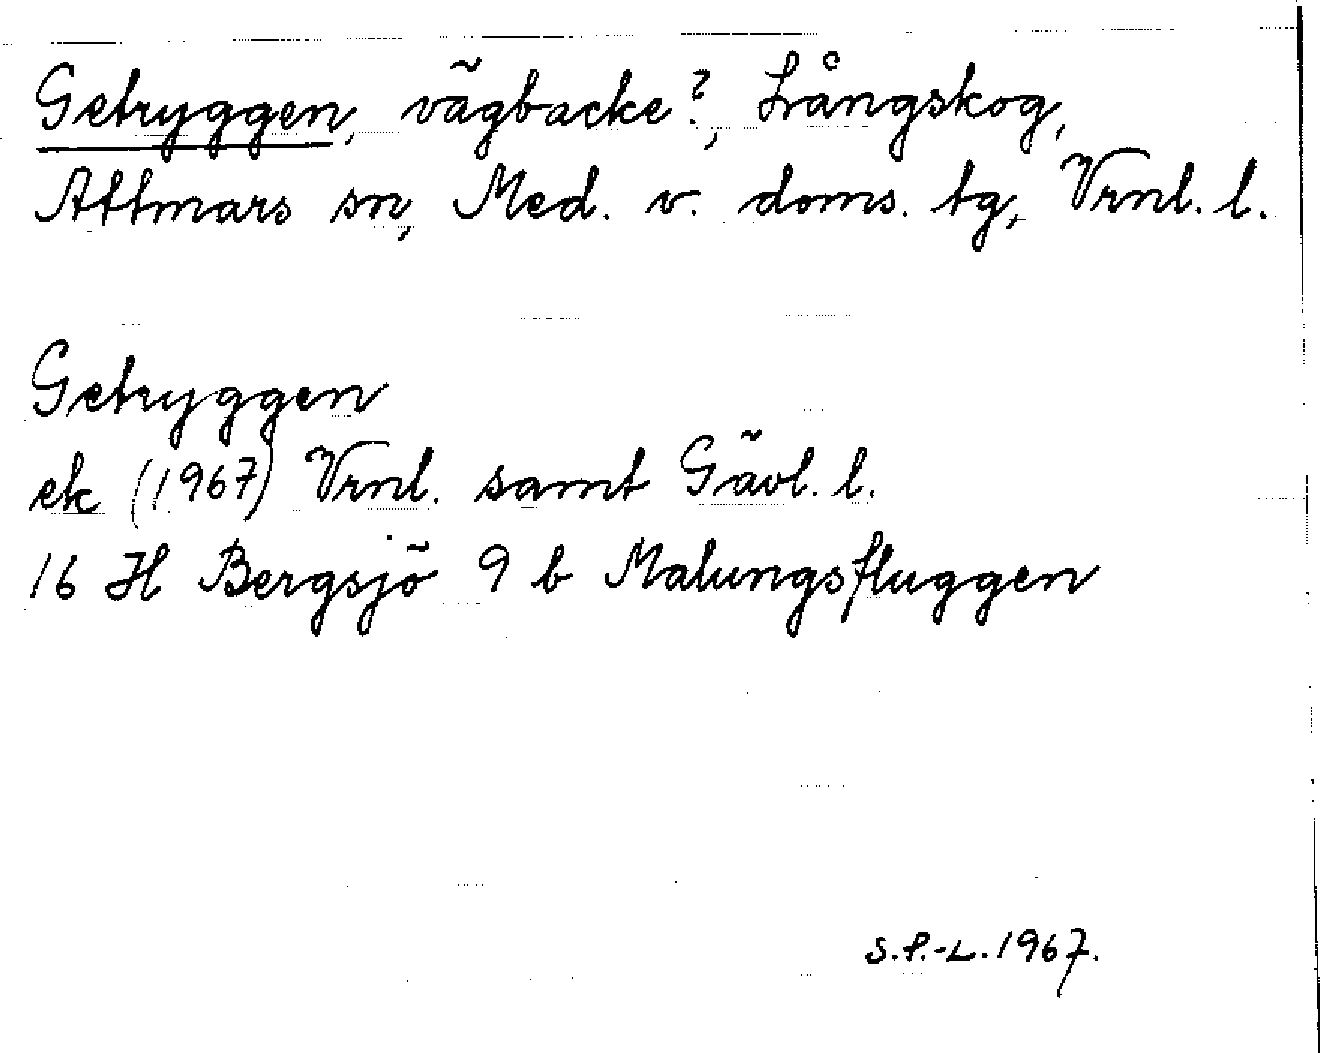 Getryggen, vägbacke?, Långskog,
Attmars sn, Med. v. doms. tg, Vrnl. l.
Getryggen
ek (1967) Vrnl. samt Gävl. l.
16 H Bergsjö 9 b Malungsfluggen
S.P.-L. 1967.